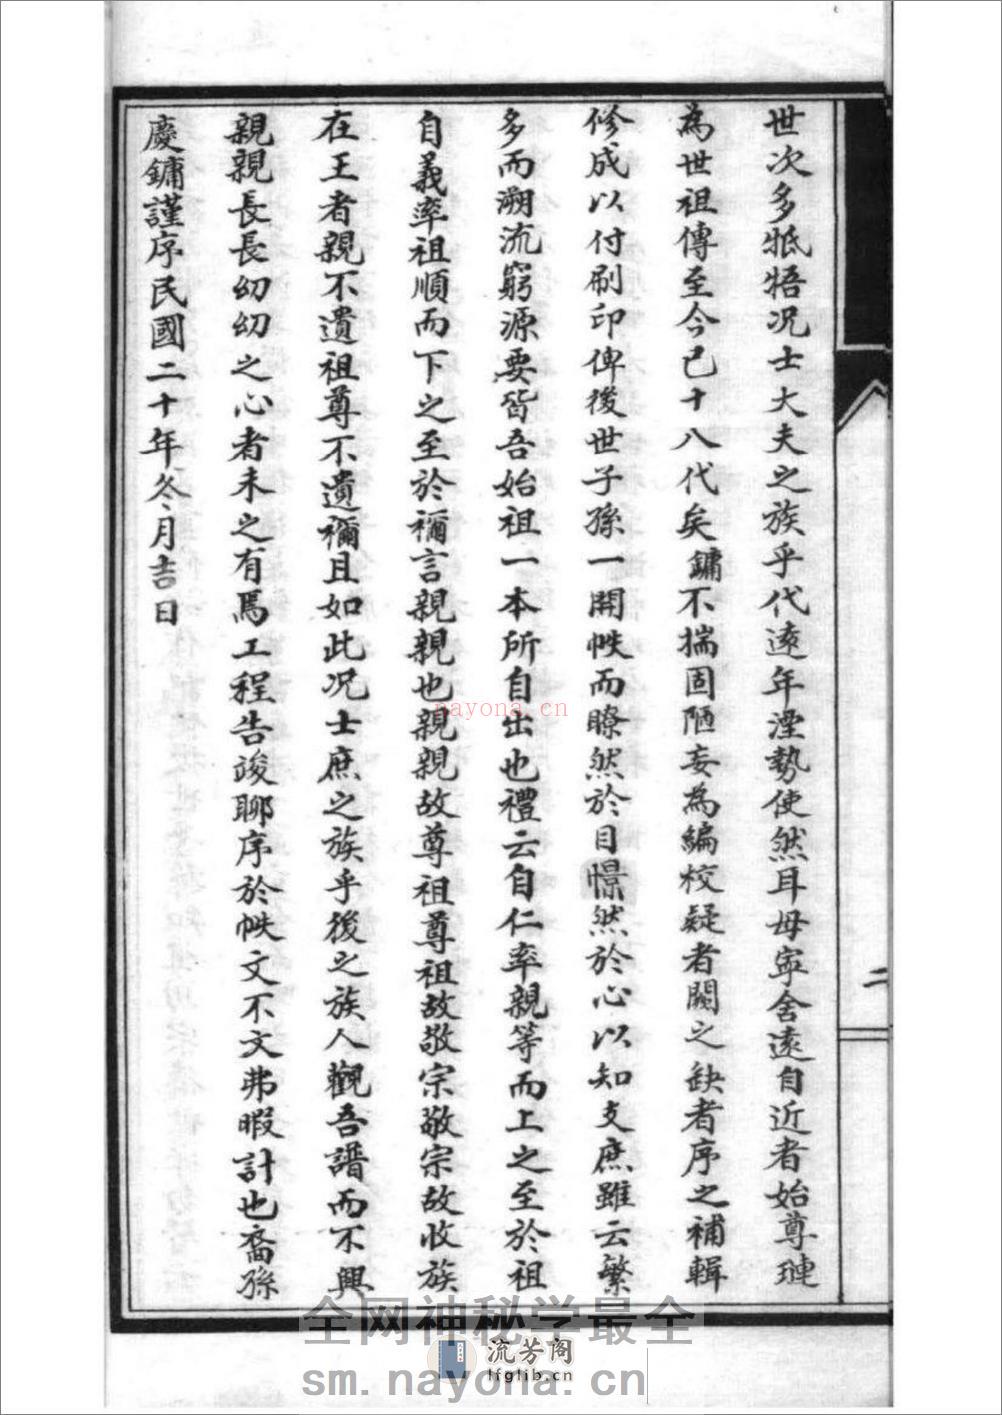 世次多牴牾况士大夫之族乎代遠年湮勢使然耳毋寧舍遠自近者始尊璉
為世祖傳至今已十八代矣鏞不揣固陋妄為編校疑者闕之缺者序之補輯
修成以付刷印俾後世子孫一開帙而瞭然於目憬然於心以知支庶雖云繁
多而溯流窮源要皆吾始祖一本所自出也禮云自仁率親等而上之至於祖
自義率祖順而下之至於禰言親親也親親故尊祖尊祖故敬宗敬宗故收族
在王者親不遺祖尊不遺禰且如此况士庶之族乎後之族人觀吾譜而不興
親親長長幼幼之心者未之有焉工程告竣聊序於帙文不文弗暇計也裔孫
慶鏞謹序民國二十年冬月吉日
二
nayona.cn
全网神秘学最全
流芳阁
lfglib.cn
sm.nayona.cn